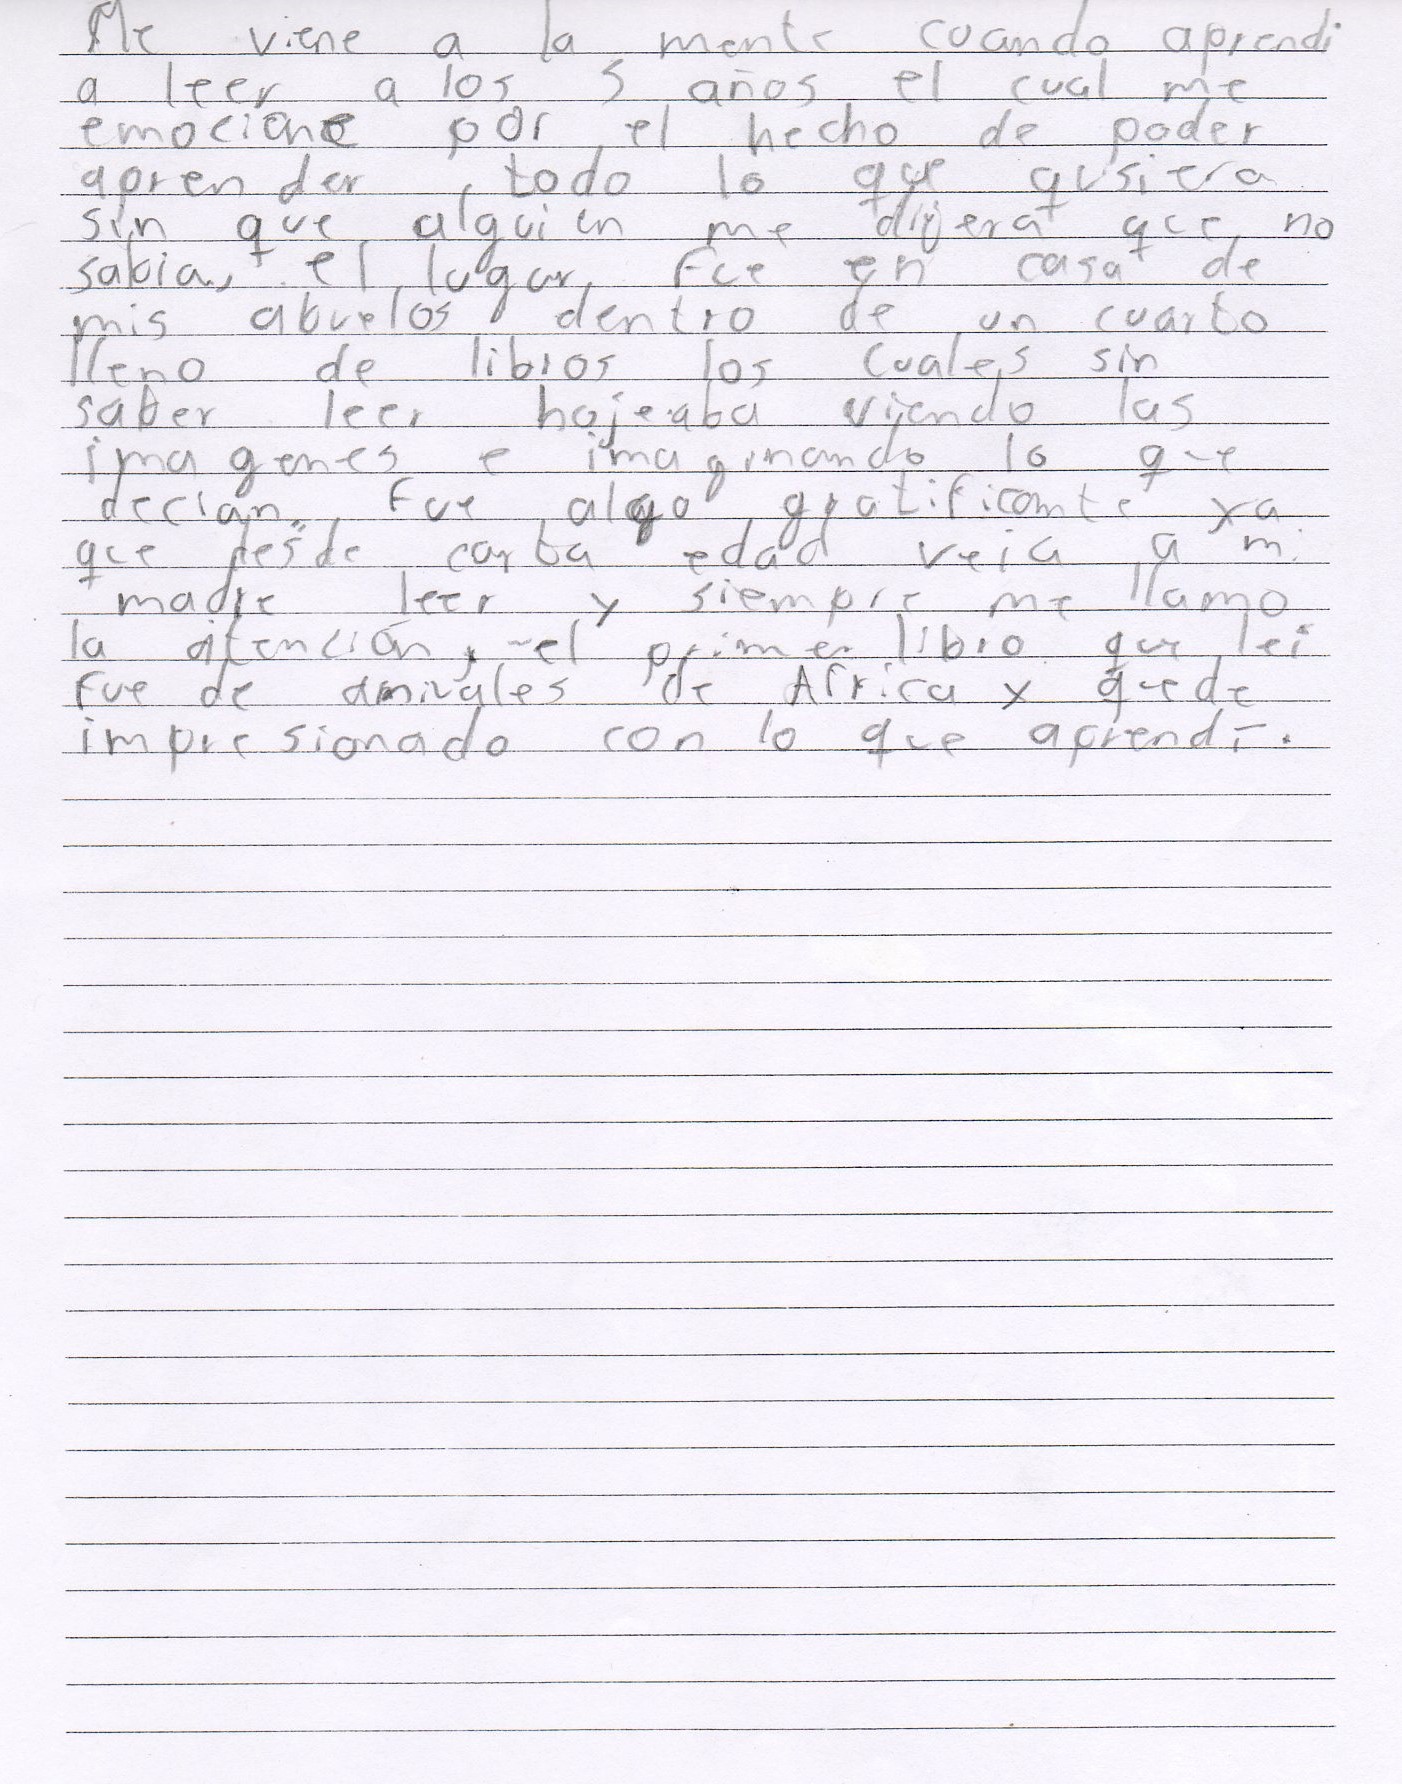 Me viene a la mente cuando aprendi
a leer a los 5 años el cual me
emocione por el hecho de poder
aprender todo lo que qusiera
sin que alguien me dijera que no
sabia, el lugar fue en casa de
mis abuelos dentro de un cuarto
lleno de libros los cuales sin
saber leer hojeaba viendo las
imagenes e imaginando lo que
decian. Fue algo gratificante ya
que desde corta edad veia a mi
madre leer y siempre me llamo
la atención, el primer libro que lei
fue de amivales de Africa y quede
impresionado con lo que aprendí.